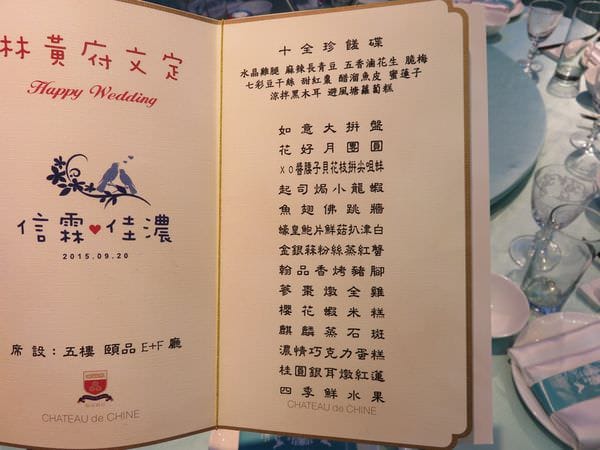 林黃府文定
Happy Wedding
信霖♥佳濃
2015.09.20
席設：五樓 頤品 E+F 廳
CHATEAU de CHINE
十全珍饈碟
水晶雞腿 麻辣長青豆 五香滷花生 脆梅
七彩豆干絲 甜紅棗 醋溜魚皮 蜜蓮子
涼拌黑木耳 避風塘蘿蔔糕
如意大拼盤
花好月團圓
xo醬腰子貝花枝拼尖咀蚌
起司焗小龍蝦
魚翅佛跳牆
蠔皇鮑片鮮菇扒津白
金銀蒜粉絲蒸紅蟹
翰品香烤豬腳
蔘棗燉全雞
櫻花蝦米糕
麒麟蒸石斑
濃情巧克力蛋糕
桂圓銀耳燉紅蓮
四季鮮水果
CHATEAU de CHINE